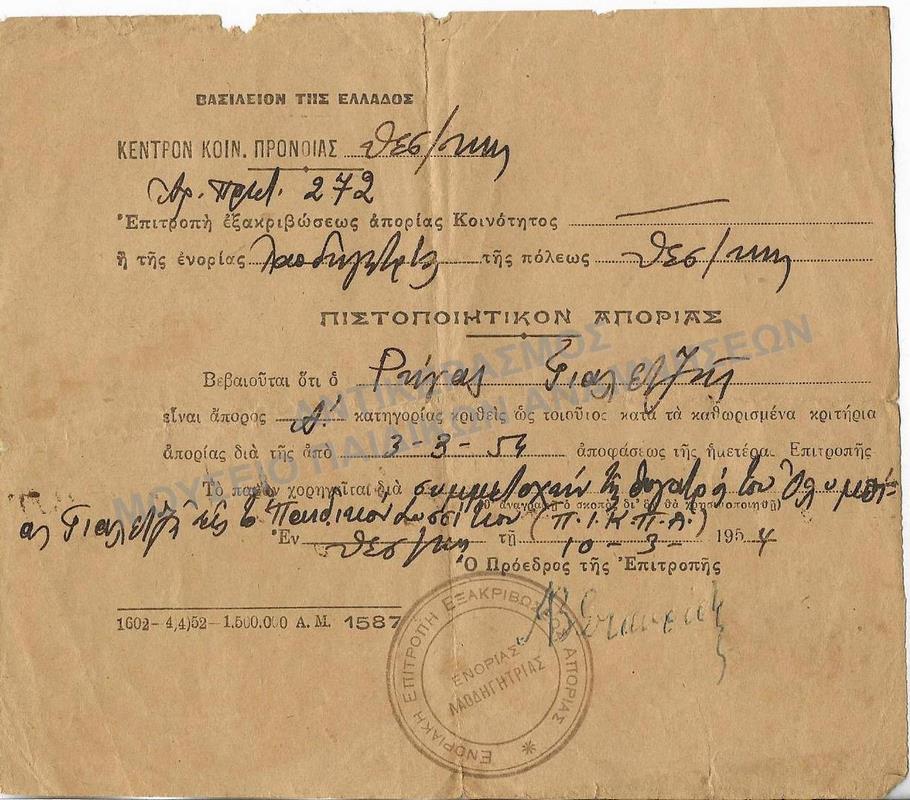 ΒΑΣΙΛΕΙΟΝ ΤΗΣ ΕΛΛΑΔΟΣ
ΚΕΝΤΡΟΝ ΚΟΙΝ. ΠΡΟΝΟΙΑΣ Θεσ/νικης
Αρ. πρωτ. 272
Ἐπιτροπὴ ἐξακριβώσεως ἀπορίας Κοινότητος
ἢ τῆς ἐνορίας Λαοδηγητρίας τῆς πόλεως Θεσ/νικης
ΠΙΣΤΟΠΟΙΗΤΙΚΟΝ ΑΠΟΡΙΑΣ
Βεβαιοῦται ὅτι ὁ Ρήγας Γιαλετζῆς
εἶναι ἄπορος Α' κατηγορίας κριθεὶς ὡς τοιοῦτος κατὰ τὰ καθωρισμένα κριτήρια
ἀπορίας διὰ τῆς ἀπὸ 3-3-54 ἀποφάσεως τῆς ἡμετέρας Ἐπιτροπῆς
Τὸ παρὸν χορηγεῖται διὰ συμμετοχὴν τῆς θυγατρός του Ὀλυμπί
(νὰ ἀναγραφῇ ὁ σκοπὸς δι' ὃν θὰ χρησιμοποιηθῇ)
ας Γιαλετζῆ εἰς τὸ Παιδικὸν Συσσίτιον (Π.Ι.Κ.Π.Α.)
Ἐν Θεσ/νικη τῇ 10-3- 1954
Ὁ Πρόεδρος τῆς Ἐπιτροπῆς
1602-4,4)52-1.500.000 Α. Μ. 1587
ΕΝΟΡΙΑΚΗ ΕΠΙΤΡΟΠΗ ΕΞΑΚΡΙΒΩΣ ΑΠΟΡΙΑΣ
ΕΝΟΡΙΑΣ
ΛΑΟΔΗΓΗΤΡΙΑΣ
ΑΝΤΙΚΑΤΑΣΜΟΣ
ΜΟΥΣΕΙΟ ΠΑΙΔΙΚΩΝ ΑΝΑΜΝΗΣΕΩΝ